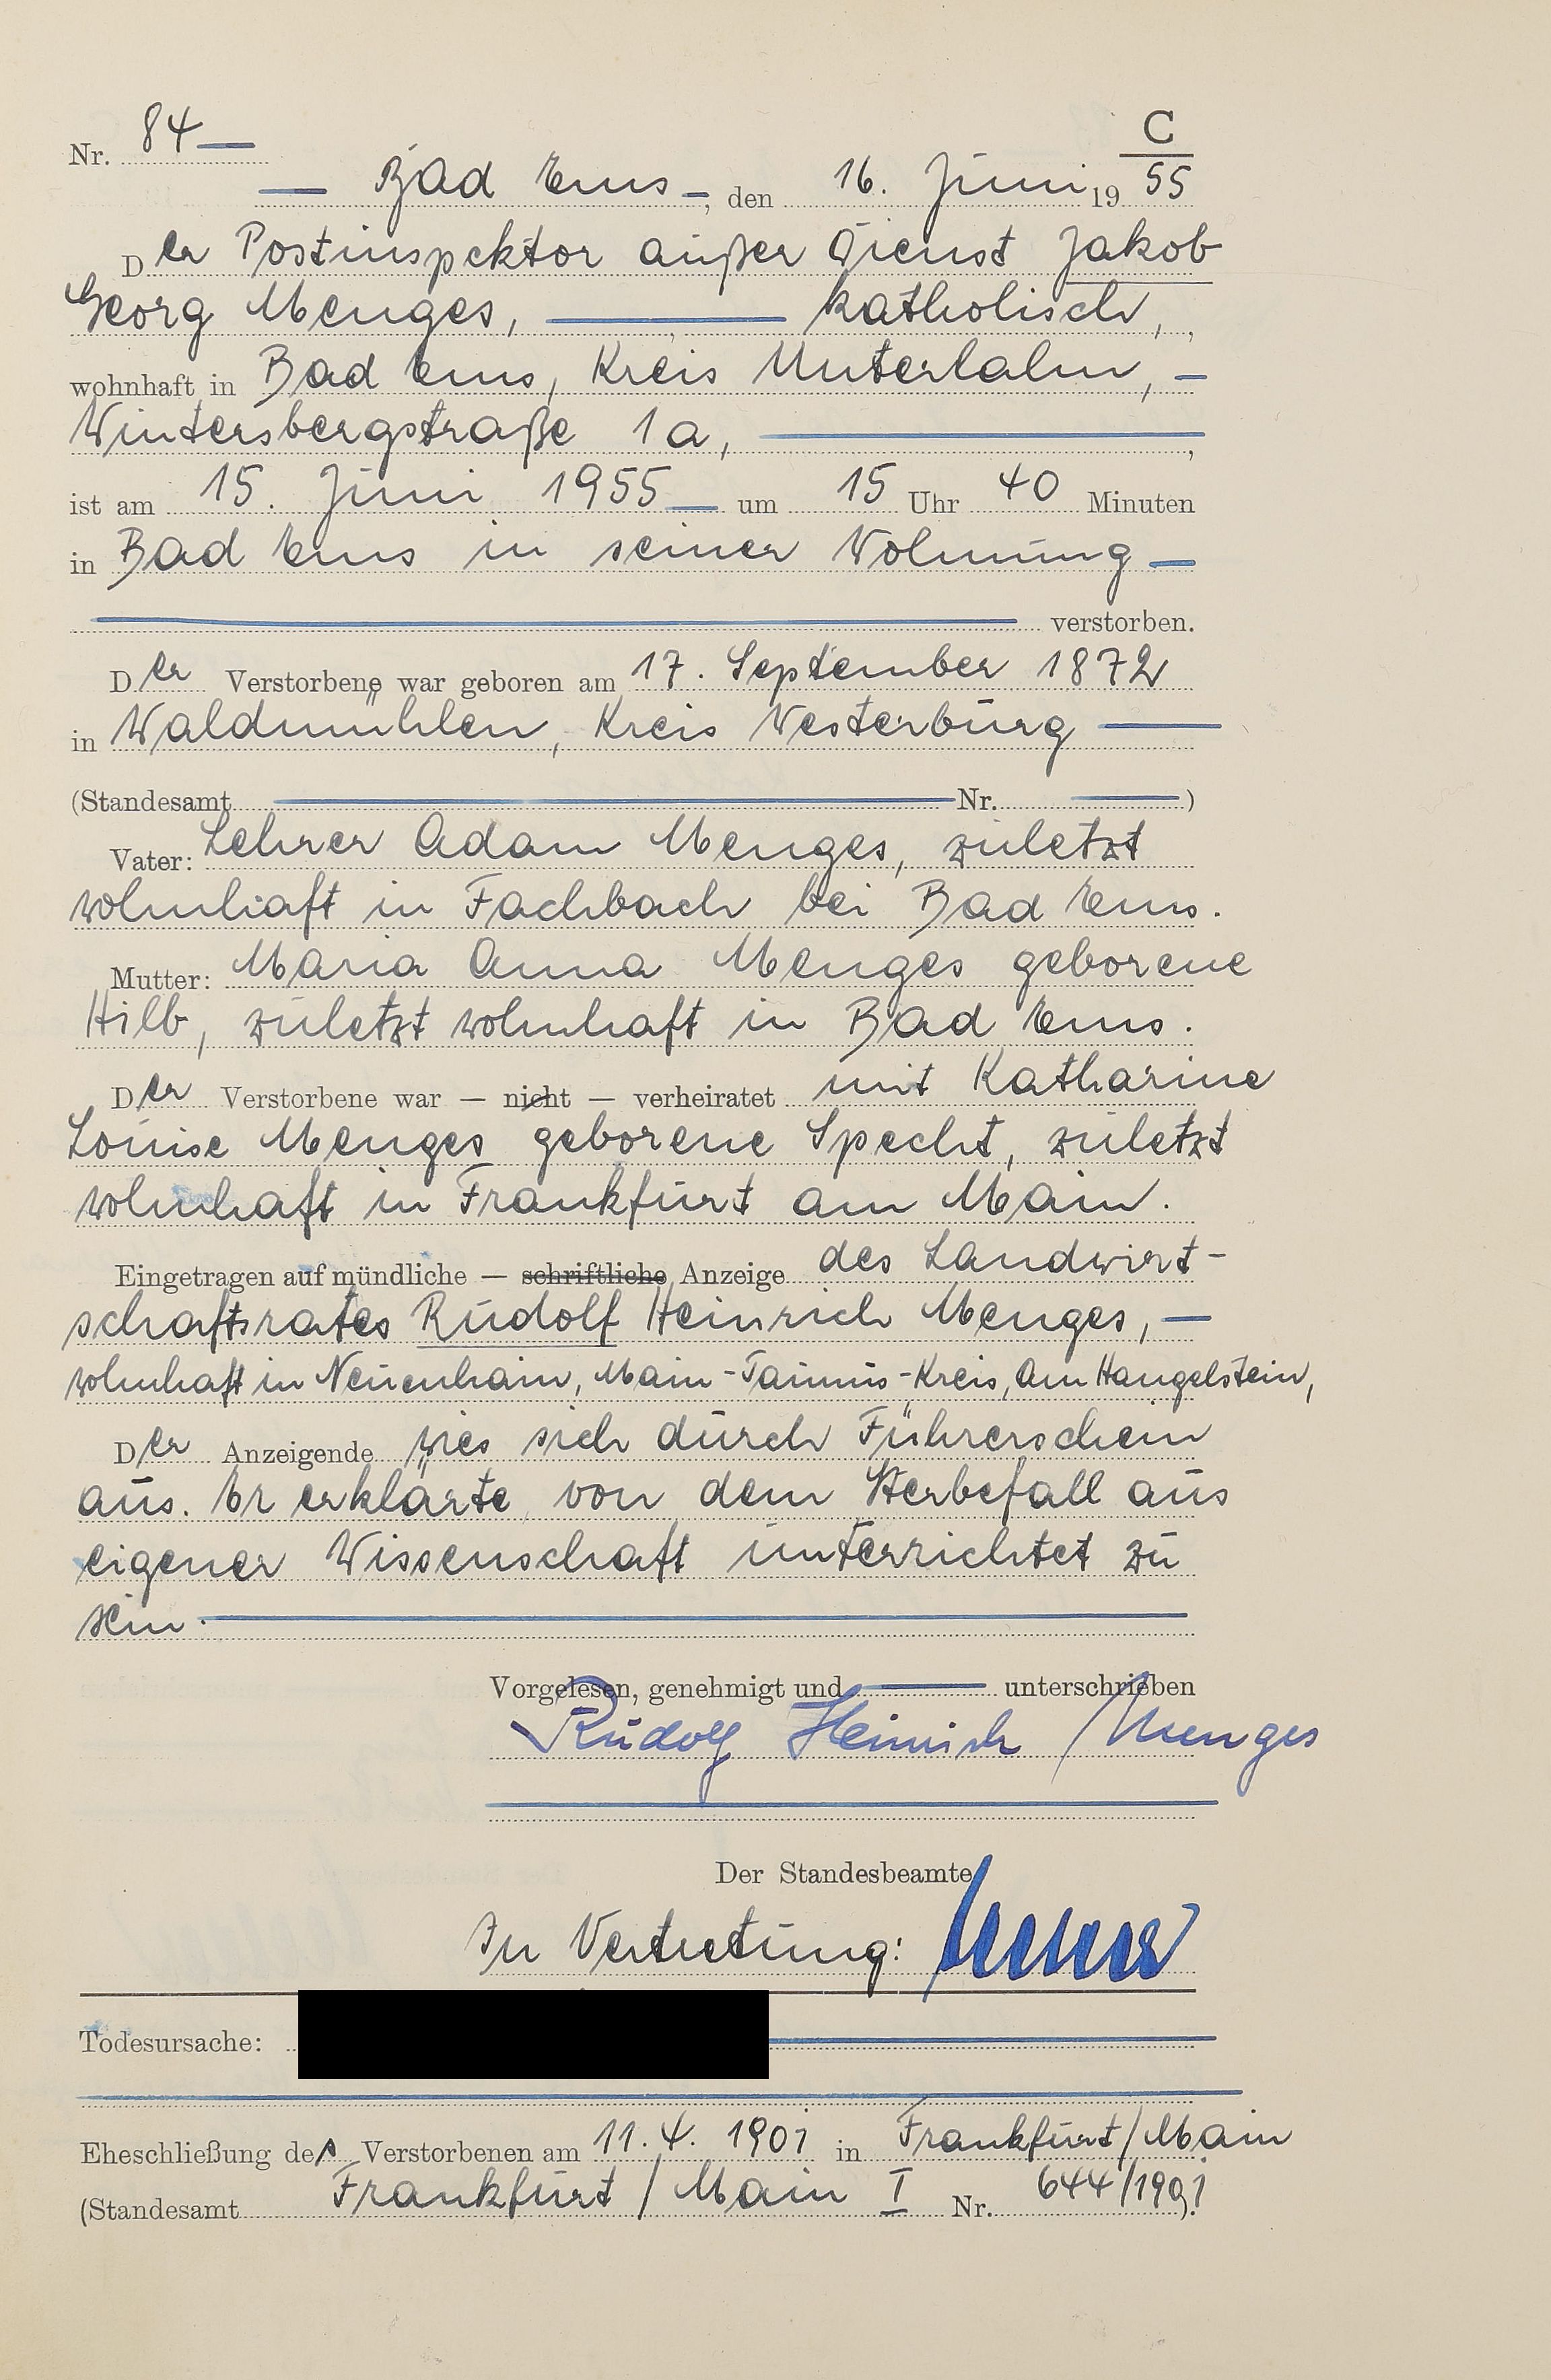 C
Nr. 84 —
— Bad Ems —, den 16. Juni 1955
Der Postinspektor außer Dienst Jakob
Georg Menges, — katholisch,
wohnhaft in Bad Ems, Kreis Unterlahn, —
Wintersbergstraße 1a, —
ist am 15. Juni 1955 — um 15 Uhr 40 Minuten
in Bad Ems in seiner Wohnung —
— verstorben.
Der Verstorbene war geboren am 17. September 1872
in Waldmühlen, Kreis Westerburg —
(Standesamt — Nr. — )
Vater: Lehrer Adam Menges, zuletzt
wohnhaft in Fachbach bei Bad Ems.
Mutter: Maria Anna Menges geborene
Hilb, zuletzt wohnhaft in Bad Ems.
Der Verstorbene war — nicht — verheiratet mit Katharine
Louise Menges geborene Specht, zuletzt
wohnhaft in Frankfurt am Main.
Eingetragen auf mündliche — schriftliche Anzeige des Landwirt-
schaftsrates Rudolf Heinrich Menges, —
wohnhaft in Neuenhain, Main-Taunus-Kreis, Am Hangelstein,
Der Anzeigende wies sich durch Führerschein
aus. Er erklärte, von dem Sterbefall aus
eigener Wissenschaft unterrichtet zu
sein. —
Vorgelesen, genehmigt und — unterschrieben
Rudolf Heinrich Menges
Der Standesbeamte
In Vertretung:
Todesursache:
Eheschließung des Verstorbenen am 11.4.1901 in Frankfurt/Main
(Standesamt Frankfurt/Main I Nr. 644/1901).